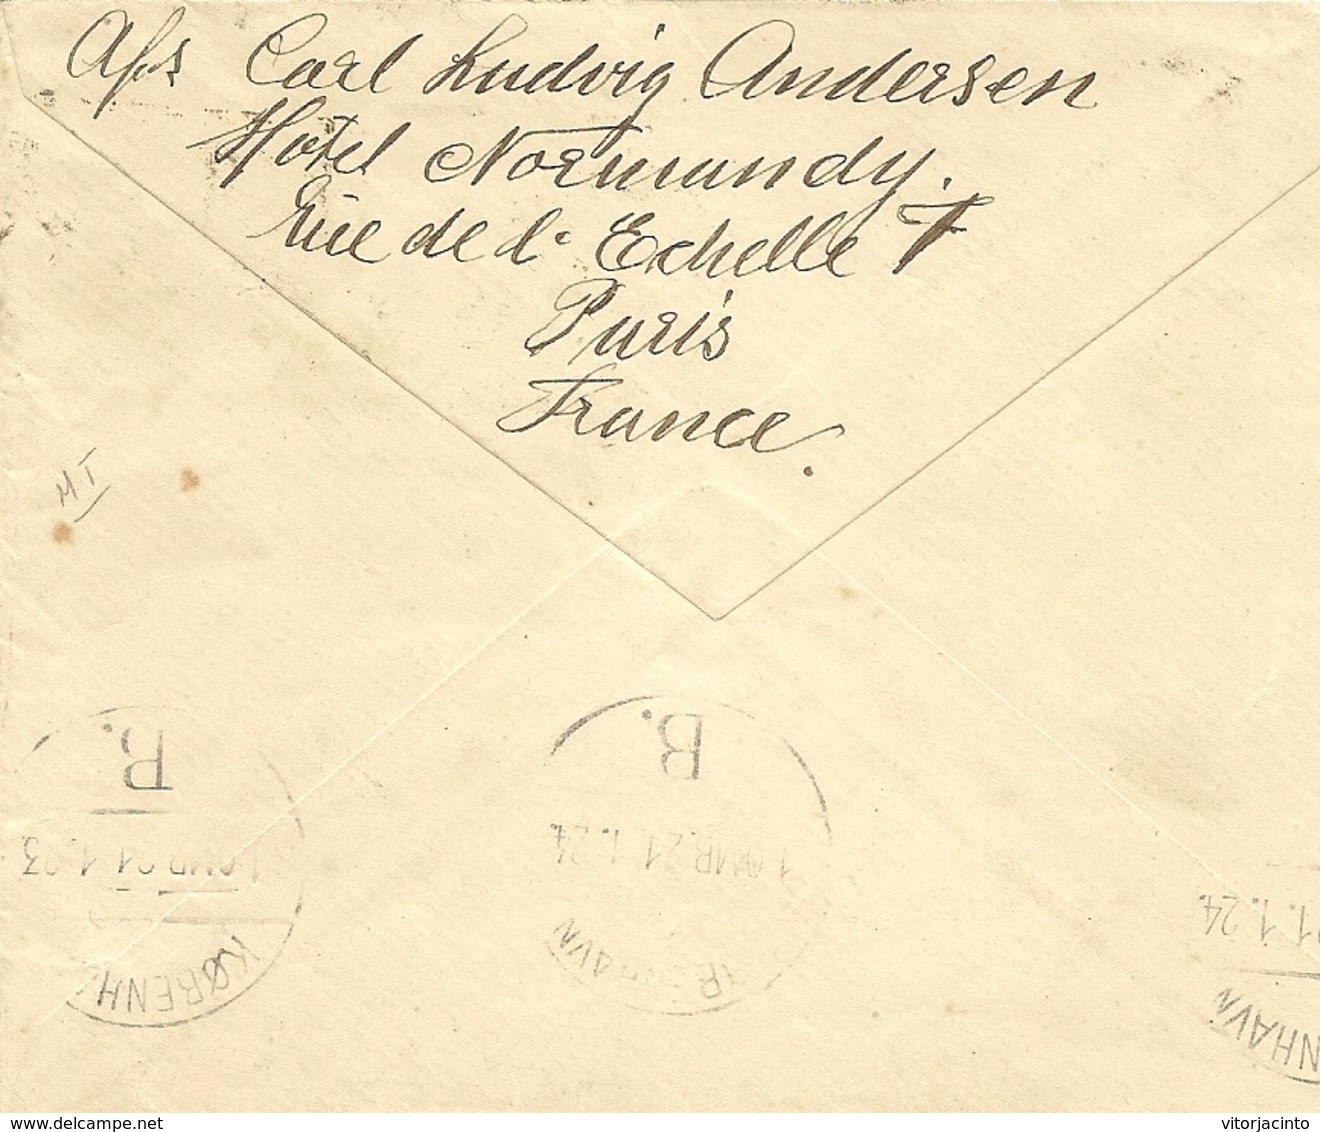 Afs Carl Ludvig Andersen
Hotel Normandy.
Rue de l' Echelle 7
Paris
France.
MI
B.
21.1.23
KØBENH
B.
21.1.24.
HAVN
1.1.24.
NHAVN
delcampe.net
vitorjacinto